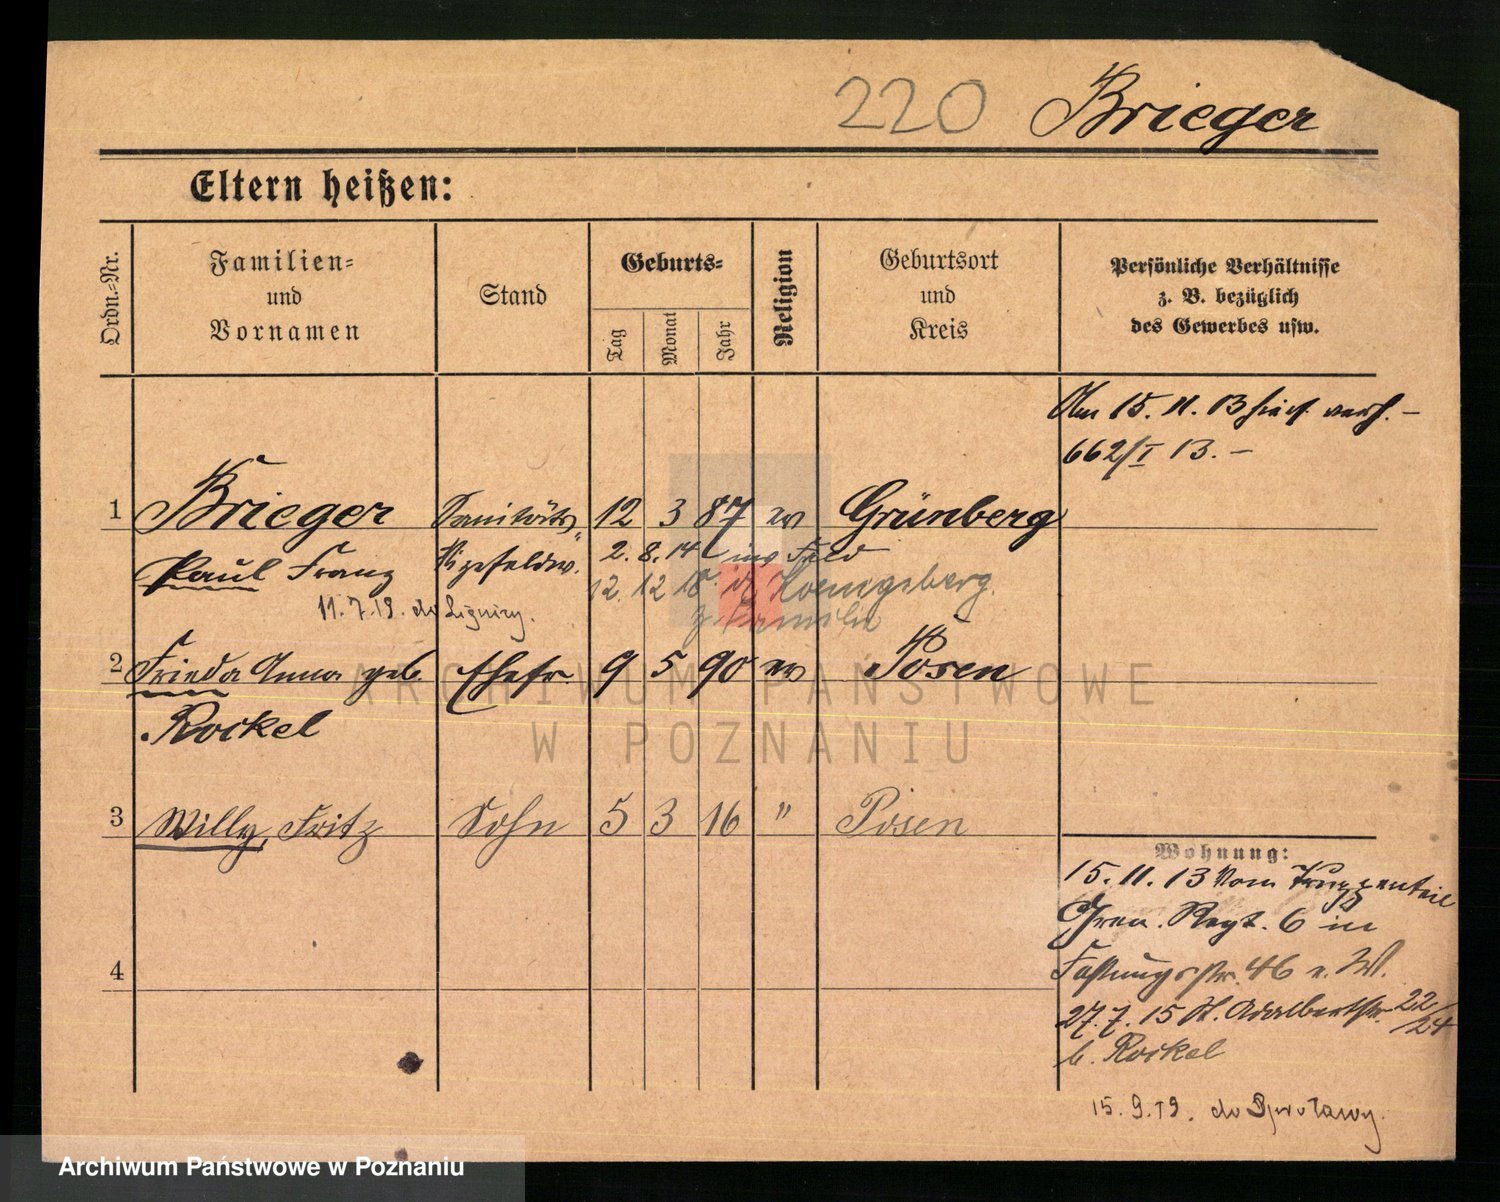 220 Brieger
Eltern heißen:
Ordn.-Nr.
Familien-
und
Vornamen
Stand
Geburts-
Tag
Monat
Jahr
Religion
Geburtsort
und
Kreis
Persönliche Verhältnisse
z. B. bezüglich
des Gewerbes usw.
Am 15. 11. 13 hier verh. —
662/I 13. —
1 Brieger Sanitäts 12 3 87 ev Grünberg
Paul Franz Vizefeldw. 2. 8. 14 ins Feld
12. 12 18 Koenigsberg
z. Familie
11. 7. 19. do Lignicy.
2 Frieda Anna geb. Ehefr. 9 5 90 ev Posen
Rockel
3 Willy, Fritz Sohn 5 3 16 " Posen
4
Wohnung:
15. 11. 13 vom Truppenteil
Gren. Regt. 6 in
Festungsstr. 46 e. W.
27. 7. 15 St. Adalbertstr. 22/24
b. Rockel
15. 9. 19. do Szprotawy.
ARCHIWUM PAŃSTWOWE
W POZNANIU
Archiwum Państwowe w Poznaniu